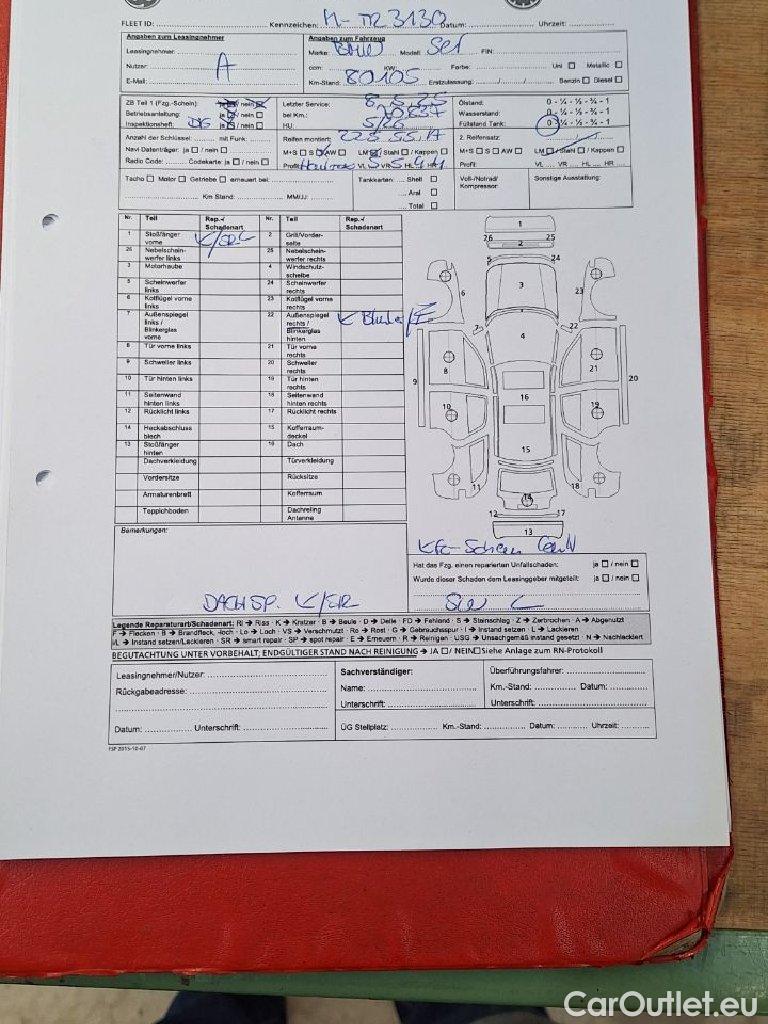 FLEET ID: Kennzeichen: M-TR 3130 Datum: Uhrzeit:
Angaben zum Leasingnehmer
Leasingnehmer:
Nutzer: A
E-Mail:
Angaben zum Fahrzeug
Marke: Modell: FIN:
ccm: KW: Farbe: Uni Metallic
Km-Stand: 80105 Erstzulassung: / / Benzin Diesel
ZB Teil 1 (Fzg.-Schein): ja / nein
Betriebsanleitung: ja / nein
Inspektionsheft: ja / nein
Letzter Service: 8.5.25
bei Km.:
HU:
Ölstand: 0 - ¼ - ½ - ¾ - 1
Wasserstand: 0 - ¼ - ½ - ¾ - 1
Füllstand Tank: 0 - ¼ - ½ - ¾ - 1
Anzahl der Schlüssel: mit Funk:
Navi Datenträger: ja / nein
Radio Code: Codekarte: ja / nein
Reifen montiert: 225 55 17
M+S S AW LM / Stahl / Kappen
Profil: VL VR HL HR
2. Reifensatz:
M+S S AW LM / Stahl / Kappen
Profil: VL VR HL HR
Tacho Motor Getriebe erneuert bei:
Km Stand: MM/JJ:
Tankkarten: Shell
Aral
Total
Voll-/Notrad/
Kompressor:
Sonstige Ausstattung:
Nr. Teil Rep.-/ Schadenart Nr. Teil Rep.-/ Schadenart
1 Stoßfänger vorne 2 Grill/Vorder-seite
26 Nebelschein-werfer links 25 Nebelschein-werfer rechts
3 Motorhaube 4 Windschutz-scheibe
5 Scheinwerfer links 24 Scheinwerfer rechts
6 Kotflügel vorne links 23 Kotflügel vorne rechts
7 Außenspiegel links / Blinkerglas vorne 22 Außenspiegel rechts / Blinkerglas hinten
8 Tür vorne links 21 Tür vorne rechts
9 Schweller links 20 Schweller rechts
10 Tür hinten links 19 Tür hinten rechts
11 Seitenwand hinten links 18 Seitenwand hinten rechts
12 Rücklicht links 17 Rücklicht rechts
14 Heckabschluss blech 15 Kofferraum-deckel
13 Stoßfänger hinten 16 Dach
Dachverkleidung Türverkleidung
Vordersitze Rücksitze
Armaturenbrett Kofferraum
Teppichboden Dachreling Antenne
1
26 25
2
5 24
3
6
23
2
22
4
8
21
9
20
10
16
19
15
11
14
18
12 17
13
Bemerkungen:
DACHSP.
Hat das Fzg. einen reparierten Unfallschaden: ja / nein
Wurde dieser Schaden dem Leasinggeber mitgeteilt: ja / nein
Legende Reparaturart/Schadenart: RI → Riss · K → Kratzer · B → Beule · D → Delle · FD → Fehlend · S → Steinschlag · Z → Zerbrochen · A → Abgenutzt
F → Flecken · B → Brandfleck, -loch · Lo → Loch · VS → Verschmutzt · Ro → Rost · G → Gebrauchsspur · I → Instand setzen · L → Lackieren
I/L → Instand setzen/Lackieren · SR → smart repair · SP → spot repair · E → Erneuern · R → Reinigen · USG → Unsachgemäß instand gesetzt · N → Nachlackiert
BEGUTACHTUNG UNTER VORBEHALT; ENDGÜLTIGER STAND NACH REINIGUNG → JA / NEIN Siehe Anlage zum RN-Protokoll
Leasingnehmer/Nutzer:
Rückgabeadresse:
Datum: Unterschrift:
Sachverständiger:
Name:
Unterschrift:
Überführungsfahrer:
Km.-Stand: Datum:
Unterschrift:
ÜG Stellplatz: Km.-Stand: Datum: Uhrzeit:
FSP 2015-10-07
CarOutlet.eu